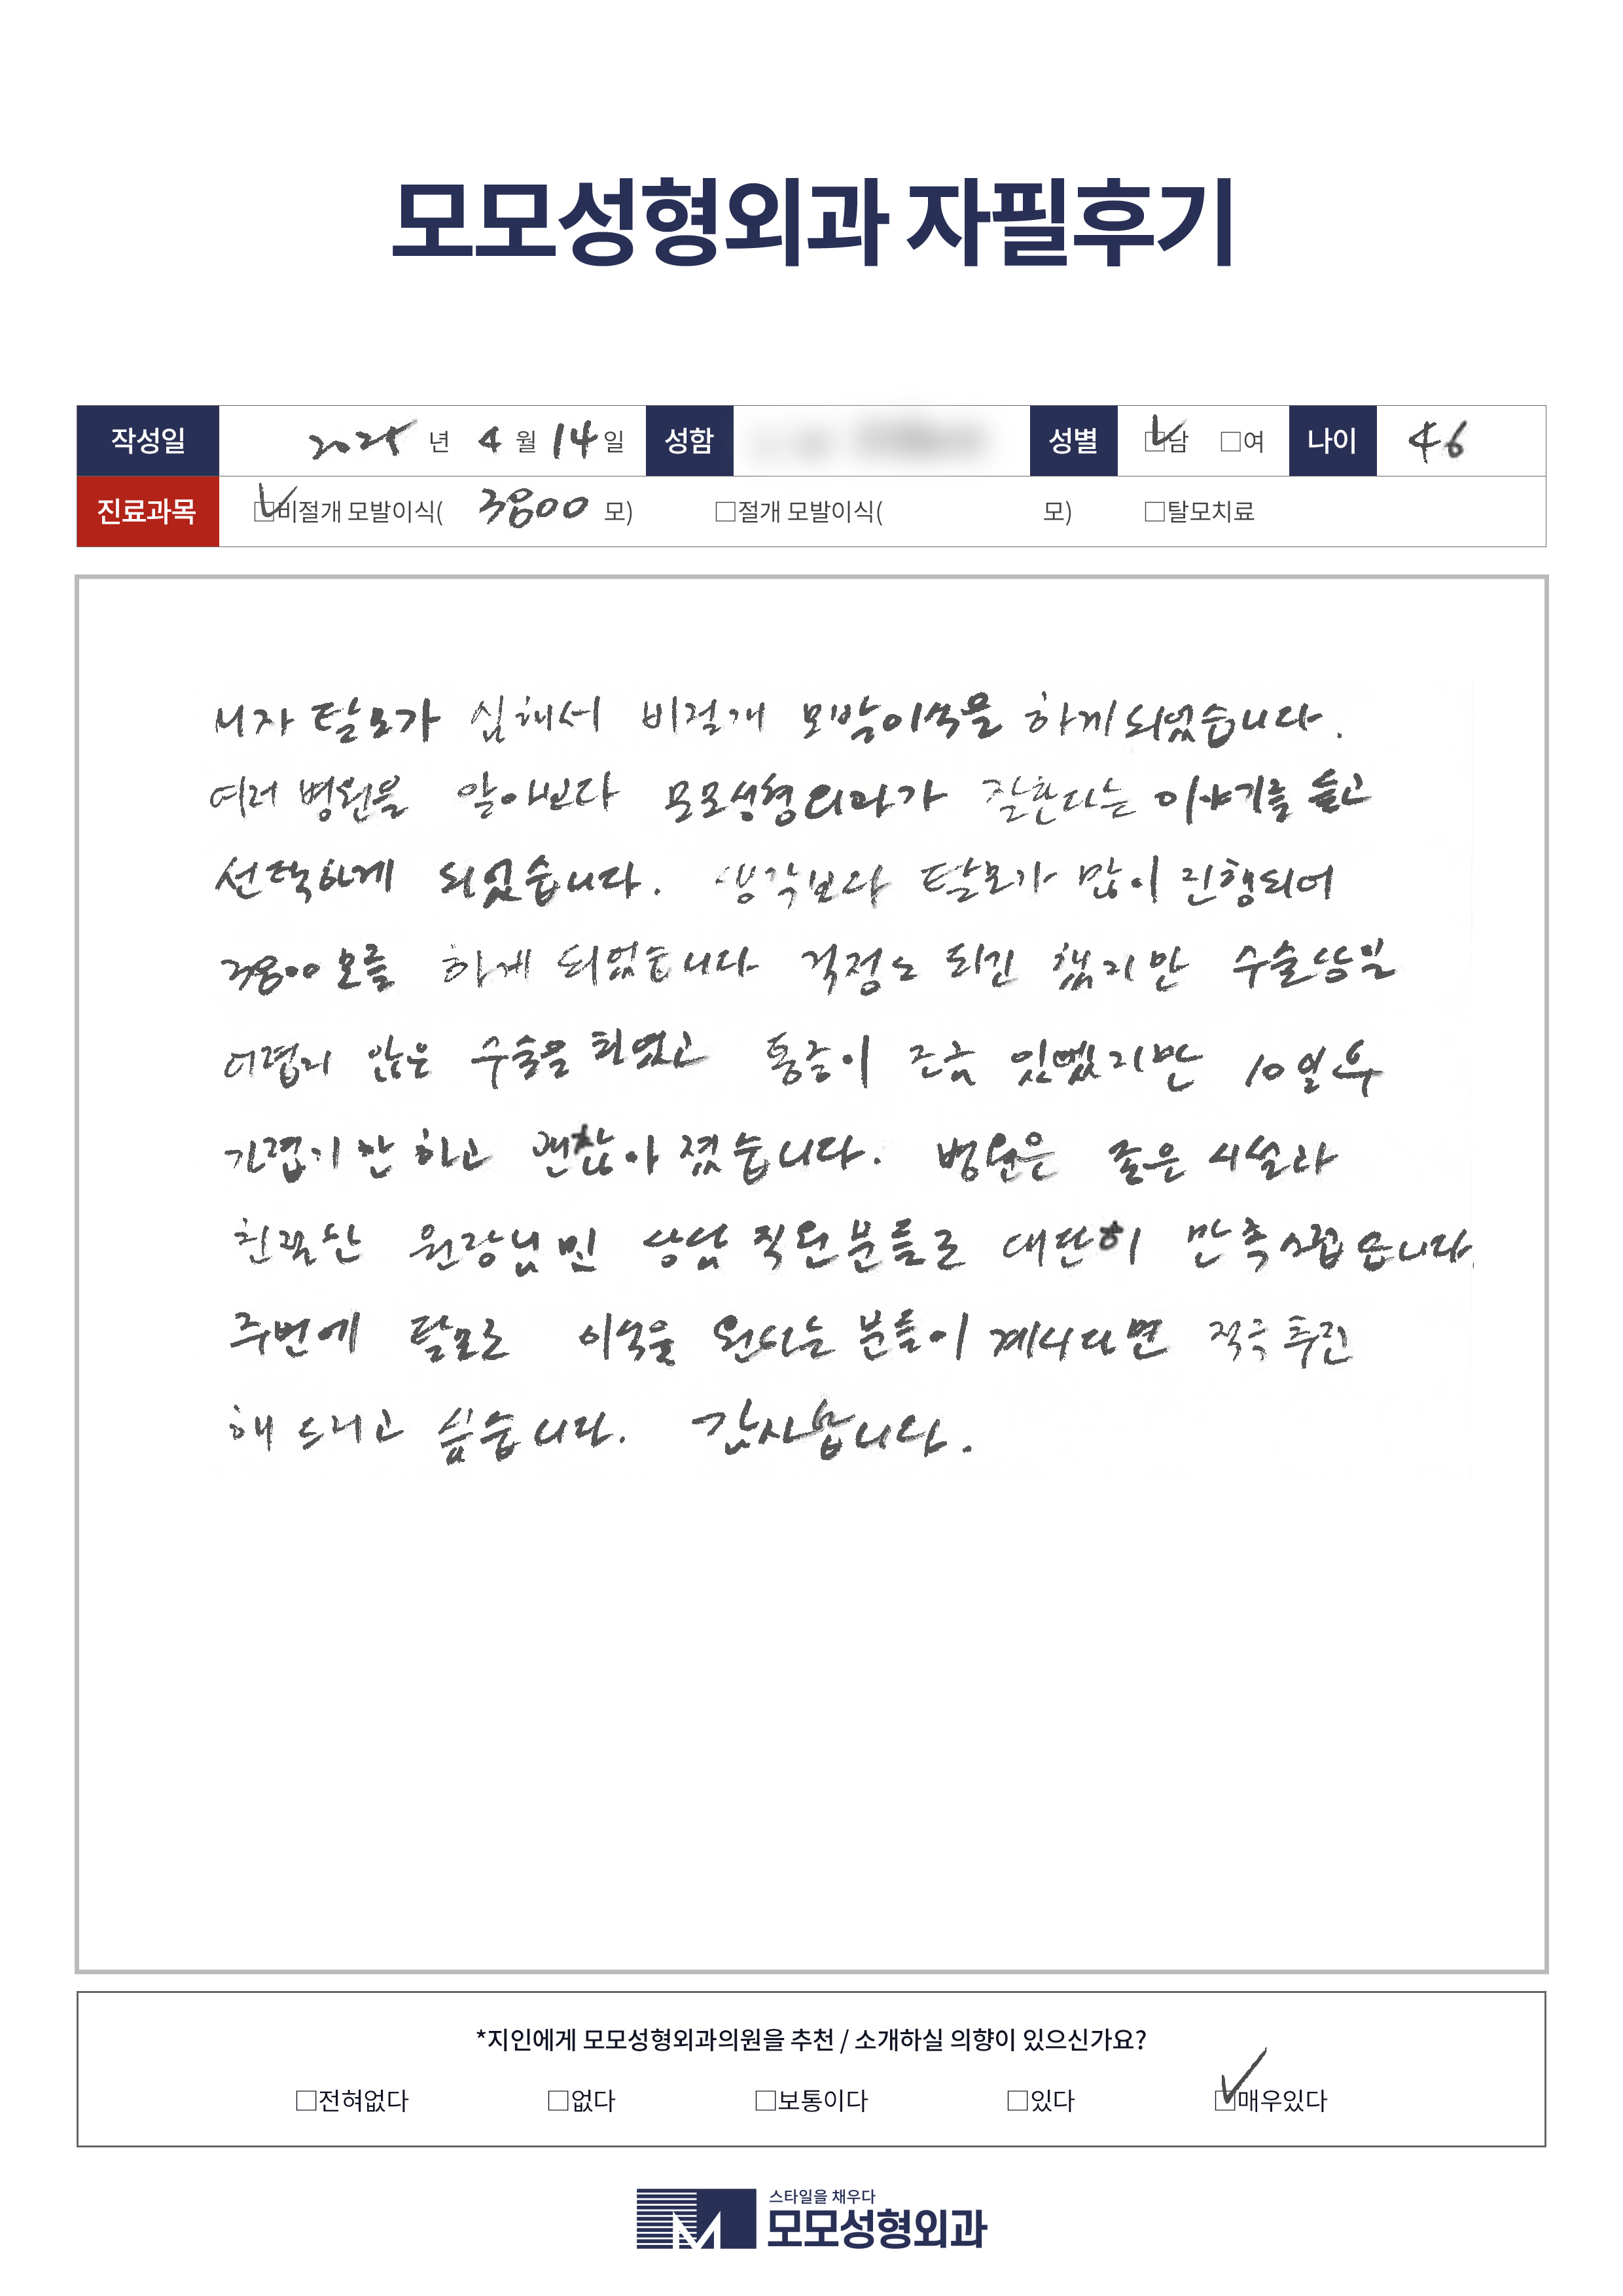 모모성형외과 자필후기
작성일 2025년 4월 14일 성함 성별 □남 □여 나이 46
진료과목 □비절개 모발이식( 3800 모) □절개 모발이식( 모) □탈모치료
M자 탈모가 심해서 비절개 모발이식을 하게되었습니다.
여러 병원을 알아보다 모모성형외과가 잘한다는 이야기를 듣고
선택하게 되었습니다. 생각보다 탈모가 많이 진행되어
3800모를 하게 되었습니다 걱정도 되긴 했지만 수술당일
어렵지 않은 수술을 되었고 통증이 조금 있었지만 10일후
가렵기만 하고 괜찮아졌습니다. 병원은 좋은 시설과
친절한 원장님 및 상담 직원분들로 대단히 만족스럽습니다.
주변에 탈모로 이식을 원하는 분들이 계시다면 적극 추천
해 드리고 싶습니다. 감사합니다.
*지인에게 모모성형외과의원을 추천 / 소개하실 의향이 있으신가요?
□전혀없다 □없다 □보통이다 □있다 □매우있다
스타일을 채우다
모모성형외과